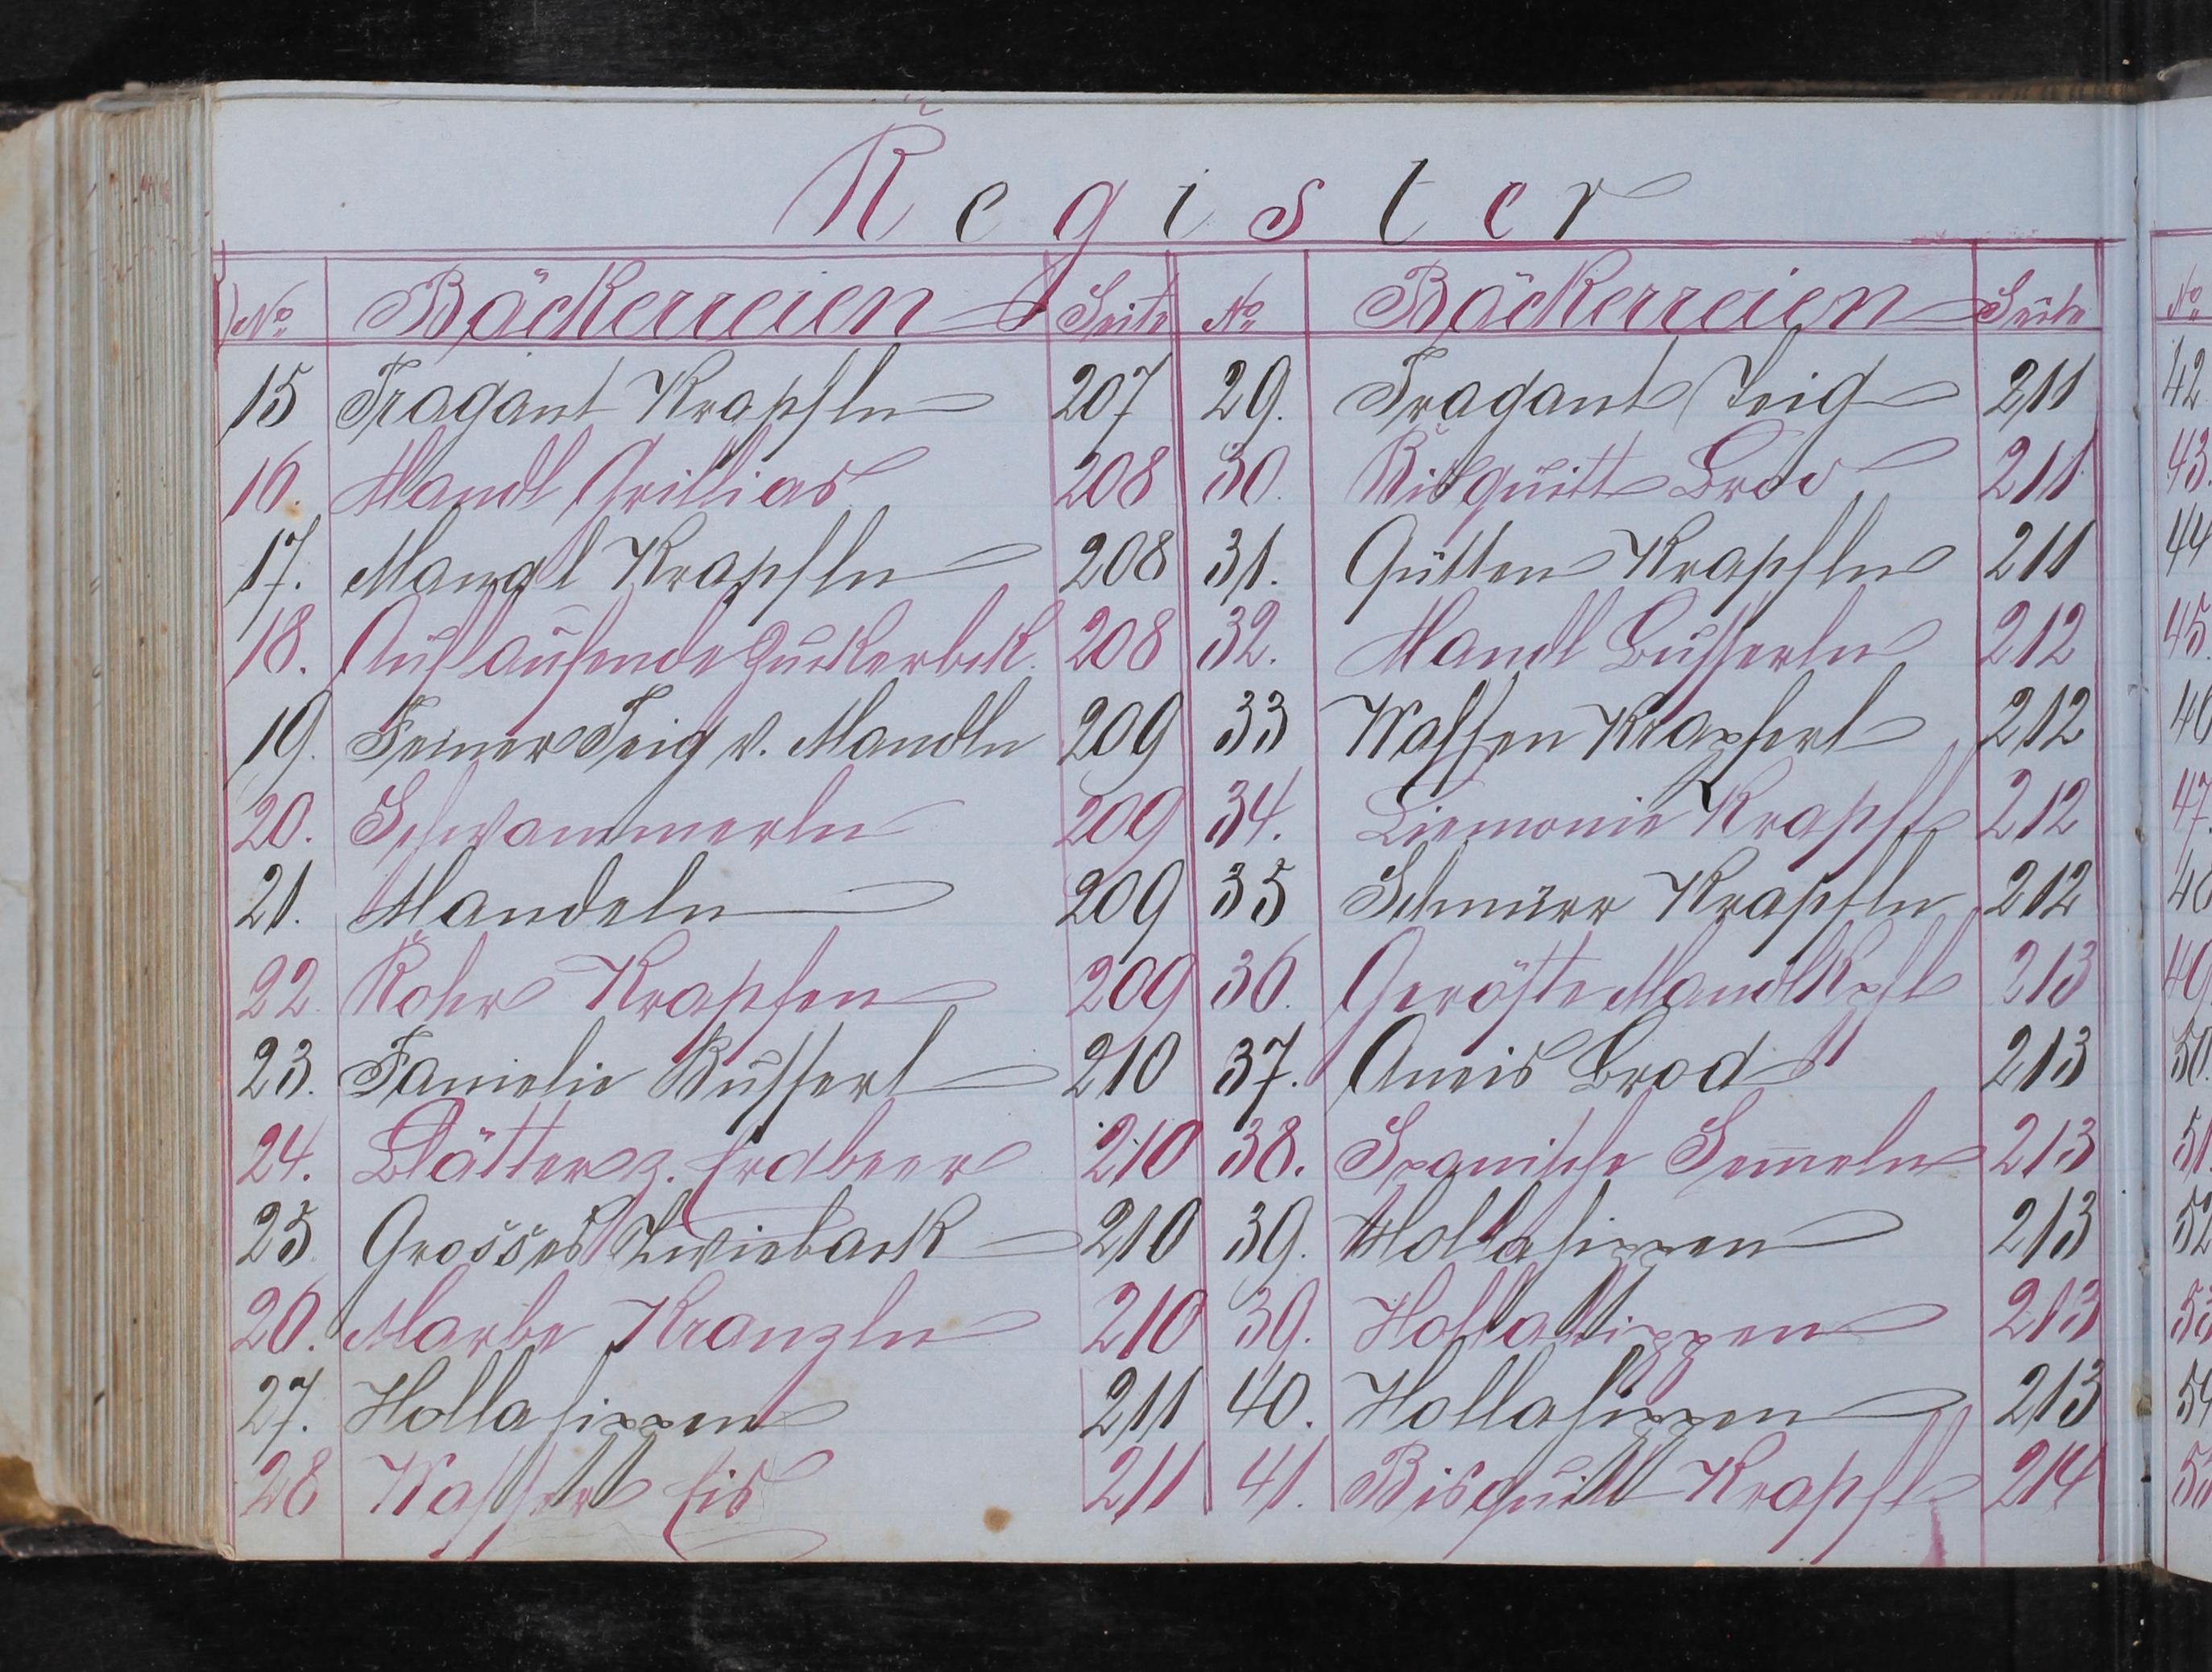 Register
No Bäckerreien Seite No Bäckerreien Seite
15 Tragant Krapfln 207 29. Tragant Teig 211
16. Mandl Grillias 208 30. Bisquitt Brod 211
17. Mangl Krapfln 208 31. Gütten Krapfln 211
18. Auflaufende Zuckerbck. 208 32. Mandl Busserln 212
19. Feiner Teig v. Mandln 209 33 Waffen Krapferl 212
20. Schwammerln 209 34. Liemonie Krapfl 212
21. Mandeln 209 35 Schnürr Krapfln 212
22. Rohr Krapfen 209 36. Geröste Mandlkpfl 213
23. Famielie Busserl 210 37. Aneis Brod 213
24. Blätter z. Erdbeer 210 38. Spanische Sem̅eln 213
25 Grosses Zwieback 210 39. Hollahippen 213
26. Marbe Kranzln 210 39. Hollahippen 213
27. Hollahippen 211 40. Hollahippen 213
28 Wasser Eis 211 41. Bisquitt Krapfl 214
No
42
43.
44
45.
46
47.
48
49
50.
51.
52
53
54
55